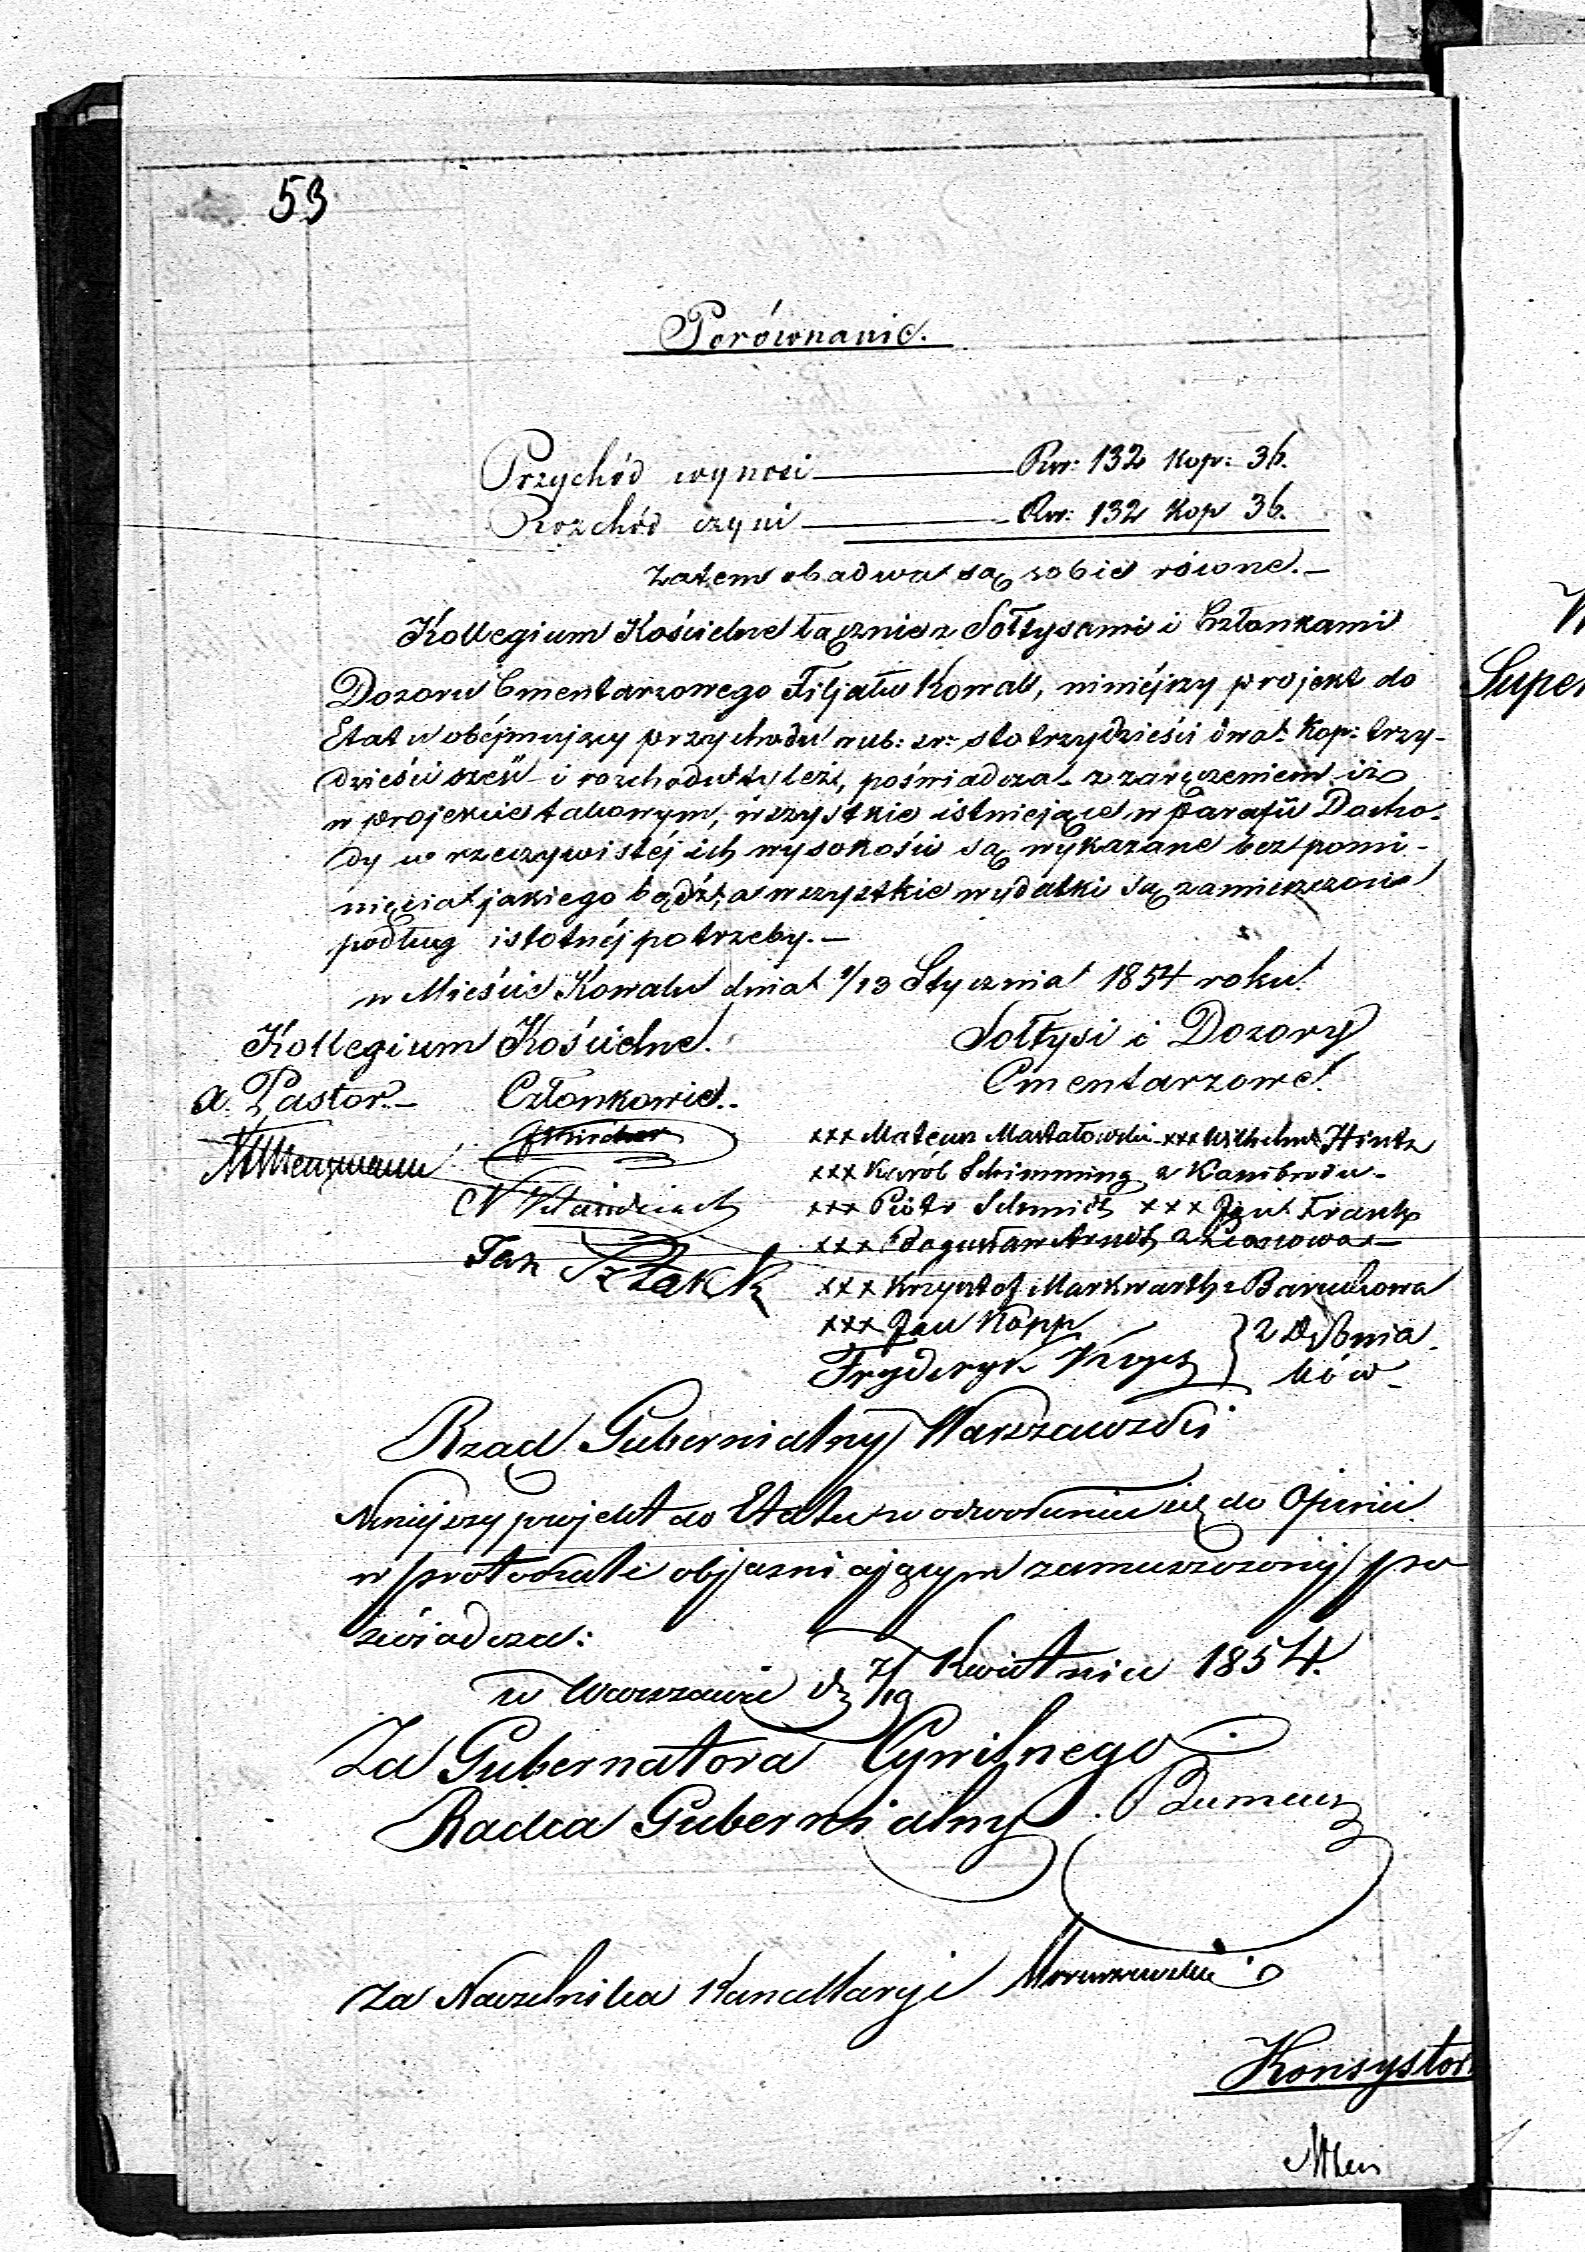 53
Porównanie.
Przychód wynosi Rsr: 132 Kop: 36.
Rozchód czyni Rsr: 132 Kop 36.
Zatem obadwa są sobie równe.—
Kollegium Kościelne łącznie z Sołtysami i Członkami
Dozoru Cmentarzowego Filjału Kowal, niniéjszy projekt do
Etatu obéjmujący przychodu rub: sr: sto trzydzieści dwa Kop: trzy-
dzieści sześć i rozchodu tyleż, poświadcza z zaręczeniem iż
w projekcie takowym, wszystkie istniejące w parafii Docho-
dy w rzeczywistéj ich wysokości są wykazane bez pomi-
nięcia jakiego bądź, a wszystkie wydatki są zamieszczone
podług istotnéj potrzeby.—
w Mieście Kowalu dnia 1/13 Stycznia 1854 roku.
Kollegium Kościelne. Sołtysi i Dozory
Cmentarzowe.
a. Pastor.— Członkowie.
xxx Mateusz xxx Wilhelm Hintz
xxx Karól Schimming z
xxx Piotr Schmidt xxx Jan Frank
xxx Bogusław Arndt z
Jan xxx Krzysztof Markwarth z Baruchowa
xxx Jan Kopp } z Dębnia
Fryderyk ków
Rząd Gubernialny Warszawski
Niniejszy projekt do Etatu w odwołaniu się do Opinii
w protokule objasniającym zamieszczonej po
świadcza:
w Warszawie d. 7/19 Kwietnia 1854.
Za Gubernatora Cywilnego
Radca Gubernialny
Za Naczelnika Kancellaryi
Konsystor
Super